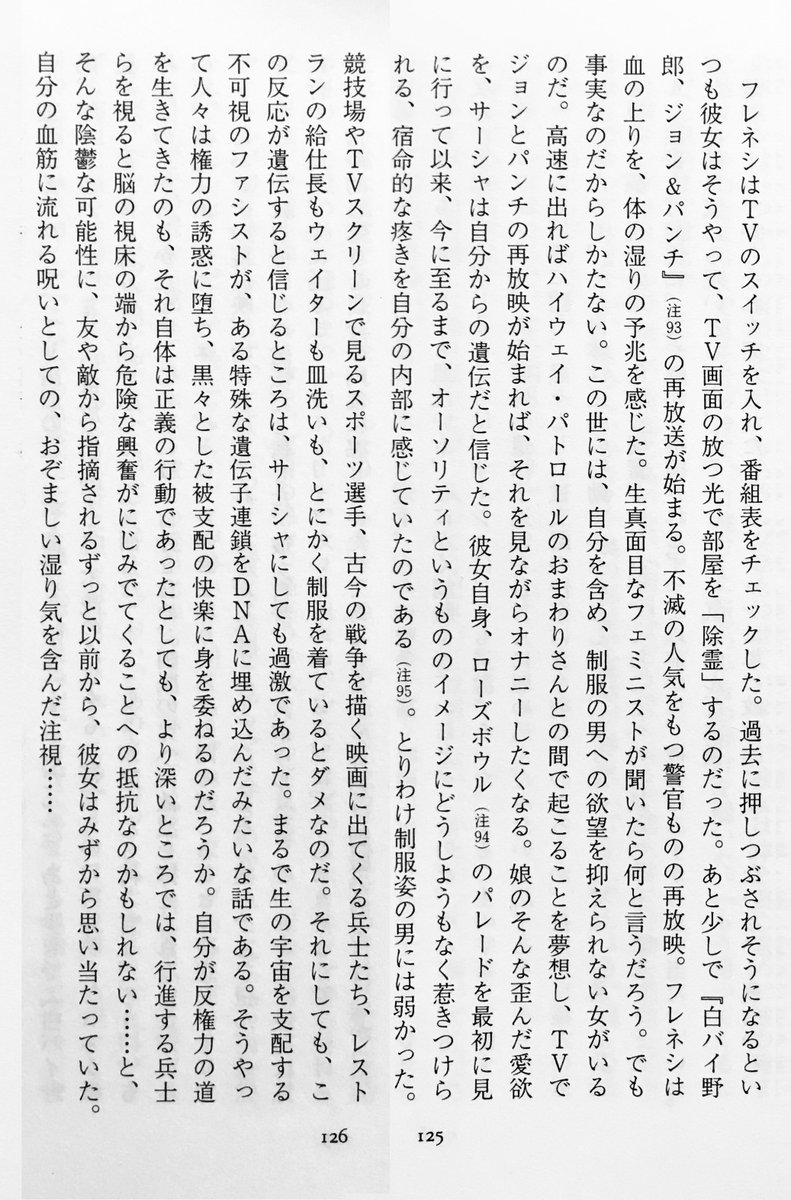 フレネシはTVのスイッチを入れ、番組表をチェックした。過去に押しつぶされそうになるとい
つも彼女はそうやって、TV画面の放つ光で部屋を「除霊」するのだった。あと少しで『白バイ野
郎、ジョン&パンチ』(注93)の再放送が始まる。不滅の人気をもつ警官ものの再放映。フレネシは
血の上りを、体の湿りの予兆を感じた。生真面目なフェミニストが聞いたら何と言うだろう。でも
事実なのだからしかたない。この世には、自分を含め、制服の男への欲望を抑えられない女がいる
のだ。高速に出ればハイウェイ・パトロールのおまわりさんとの間で起こることを夢想し、TVで
ジョンとパンチの再放映が始まれば、それを見ながらオナニーしたくなる。娘のそんな歪んだ愛欲
を、サーシャは自分からの遺伝だと信じた。彼女自身、ローズボウル(注94)のパレードを最初に見
に行って以来、今に至るまで、オーソリティというもののイメージにどうしようもなく惹きつけら
れる、宿命的な疼きを自分の内部に感じていたのである(注95)。とりわけ制服姿の男には弱かった。
125
競技場やTVスクリーンで見るスポーツ選手、古今の戦争を描く映画に出てくる兵士たち、レスト
ランの給仕長もウェイターも皿洗いも、とにかく制服を着ているとダメなのだ。それにしても、こ
の反応が遺伝すると信じるところは、サーシャにしても過激であった。まるで生の宇宙を支配する
不可視のファシストが、ある特殊な遺伝子連鎖をDNAに埋め込んだみたいな話である。そうやっ
て人々は権力の誘惑に堕ち、黒々とした被支配の快楽に身を委ねるのだろうか。自分が反権力の道
を生きてきたのも、それ自体は正義の行動であったとしても、より深いところでは、行進する兵士
らを視ると脳の視床の端から危険な興奮がにじみでてくることへの抵抗なのかもしれない……と、
そんな陰鬱な可能性に、友や敵から指摘されるずっと以前から、彼女はみずから思い当たっていた。
自分の血筋に流れる呪いとしての、おぞましい湿り気を含んだ注視……
126